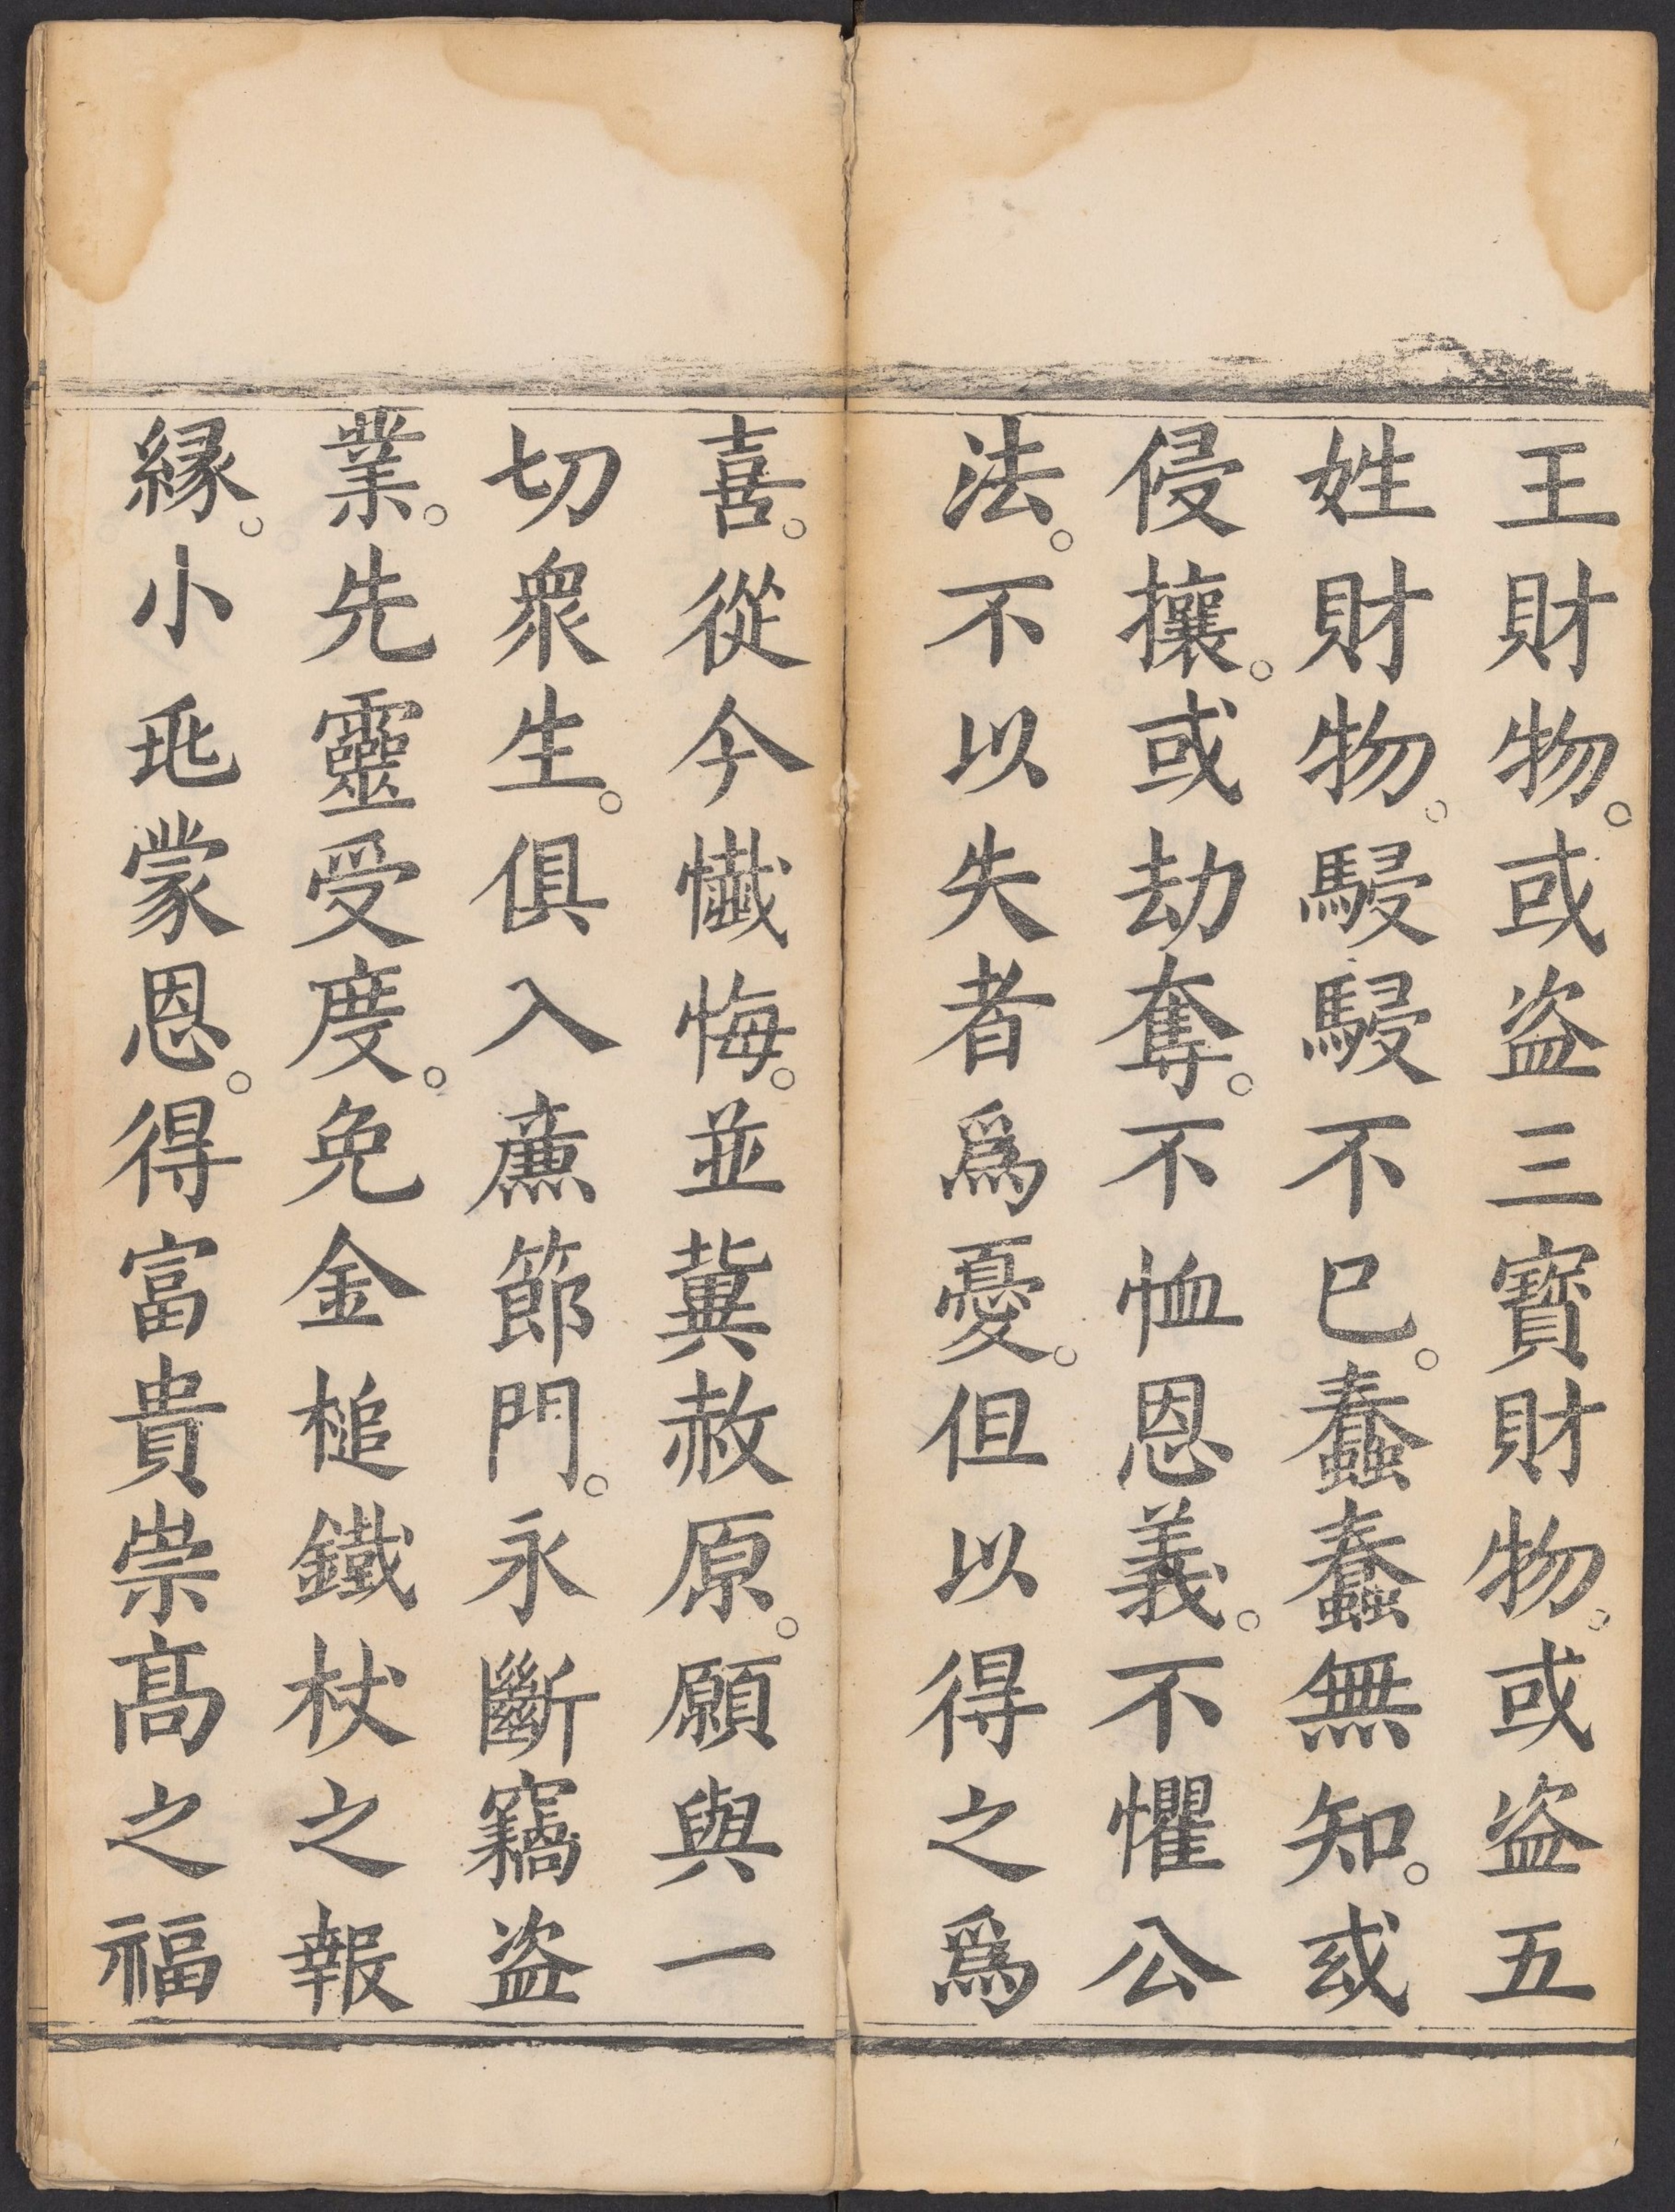 王財物。或盗三寳財物。或盗五
姓財物。駸駸不已。蠢蠢無知。或
侵攘。或劫奪。不恤恩義。不懼公
法。不以失者爲憂。但以得之爲
喜。從今懺悔。並冀赦原。願與一
切衆生。俱入亷節門。永斷竊盗
業。先靈受度。免金槌鐵杖之報
縁。小兆蒙恩。得富貴崇髙之福